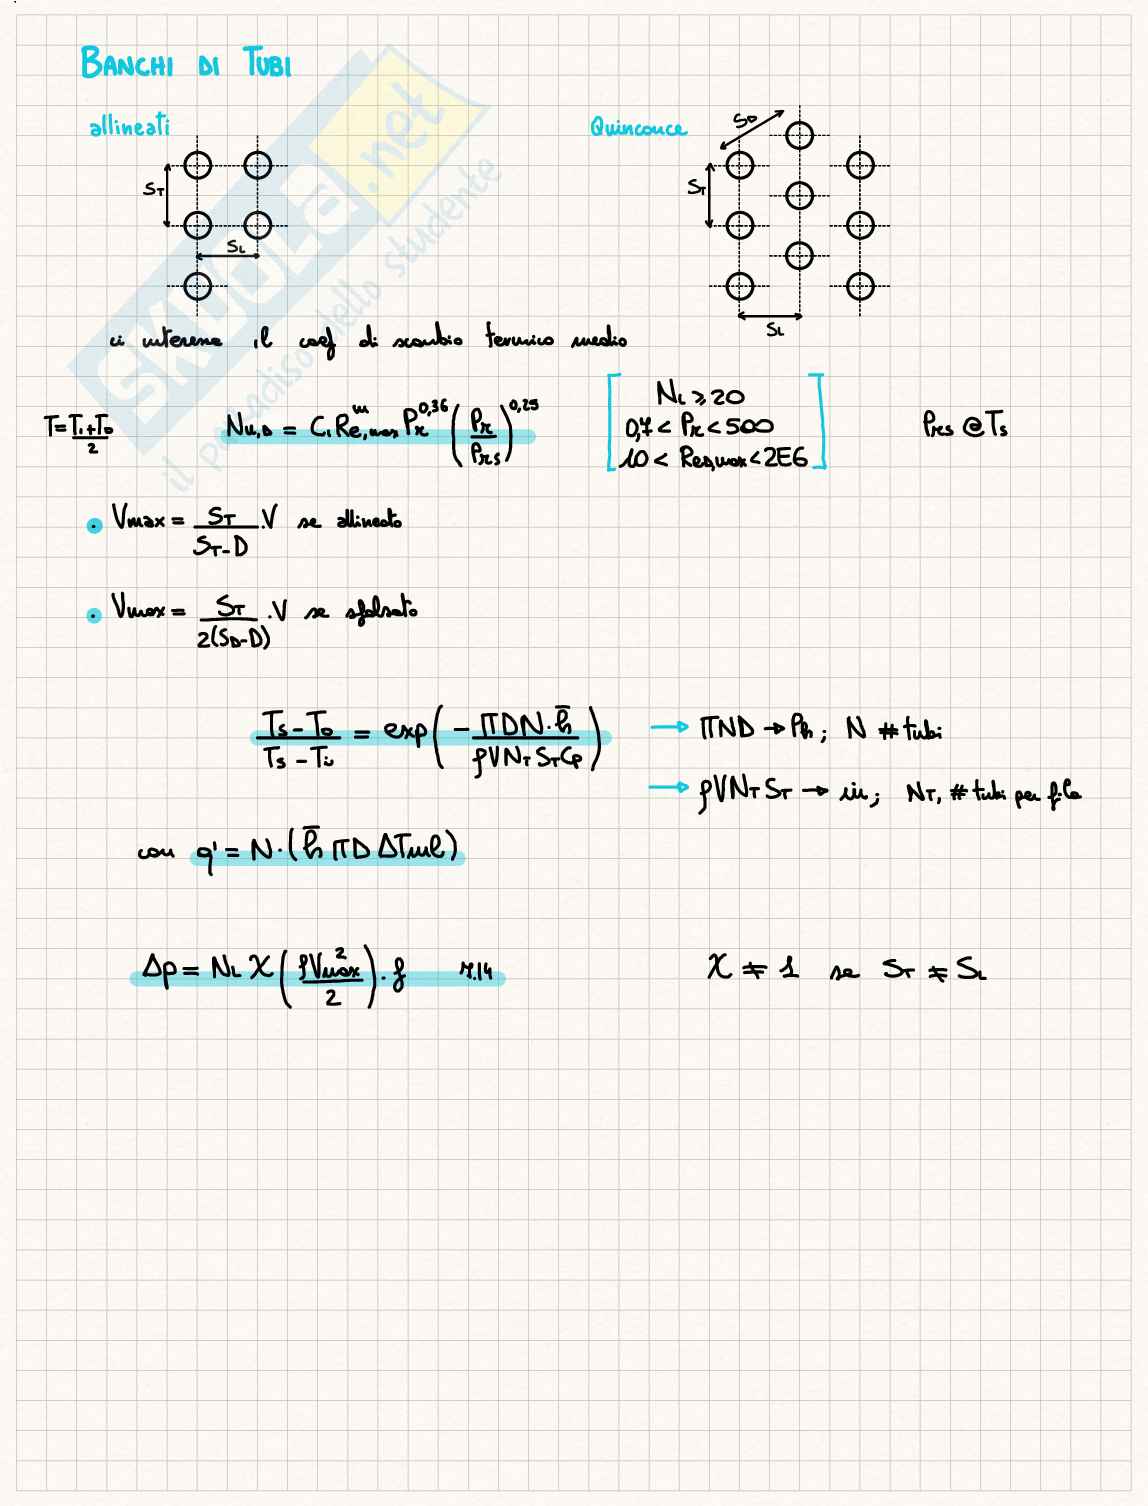 BANCHI DI TUBI
allineati
Quinconce
ST
SL
SD
ST
SL
ci interessa il coef di scambio termico medio
T = (Ti + To) / 2
Nu,D = C1 Re,max^m Pr^0,36 (Pr / Prs)^0,25
NL ⩾ 20
0,7 < Pr < 500
10 < ReD,max < 2E6
Prs @ Ts
• Vmax = ST / (ST - D) · V se allineato
• Vmax = ST / 2(SD - D) · V se sfalsato
(Ts - To) / (Ts - Ti) = exp(- ΠDN · h̄ / ρVNT ST Cp)
→ ΠND → Ph ; N # tubi
→ ρVNT ST → ṁ ; NT, # tubi per fila
con q' = N · (h̄ ΠD ΔTml)
Δp = NL χ (ρVmax² / 2) · f 7.14
χ ≠ 1 se ST ≠ SL
SKUOLA.net
il paradiso dello studente